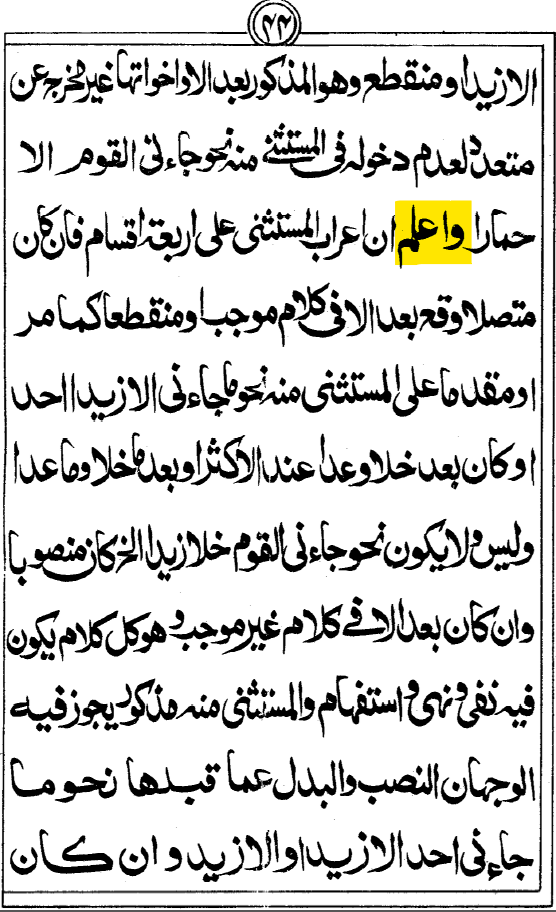 ٤٤
الا زيدا و منقطع و هو المذكور بعد الا و اخواتها غير مخرج عن
متعدد لعدم دخوله فى المستثنى منه نحو جاءنى القوم الا
حمارا و اعلم ان اعراب المستثنى على اربعة اقسام فان كان
متصلا وقع بعد الا فى كلام موجب او منقطعا كما مر
او مقدما على المستثنى منه نحو ما جاءنى الا زيدا احد
او كان بعد خلا و عدا عند الاكثر او بعد ما خلا و ما عدا
و ليس و لا يكون نحو جاءنى القوم خلا زيدا الخ كان منصوبا
و ان كان بعد الا فى كلام غير موجب و هو كل كلام يكون
فيه نفى و نهى و استفهام و المستثنى منه مذكور يجوز فيه
الوجهان النصب و البدل عما قبلها نحو ما
جاءنى احد الا زيدا و الا زيد و ان كان